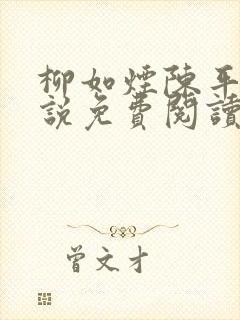 柳如煙陳平
說免費閱讀
曾文才